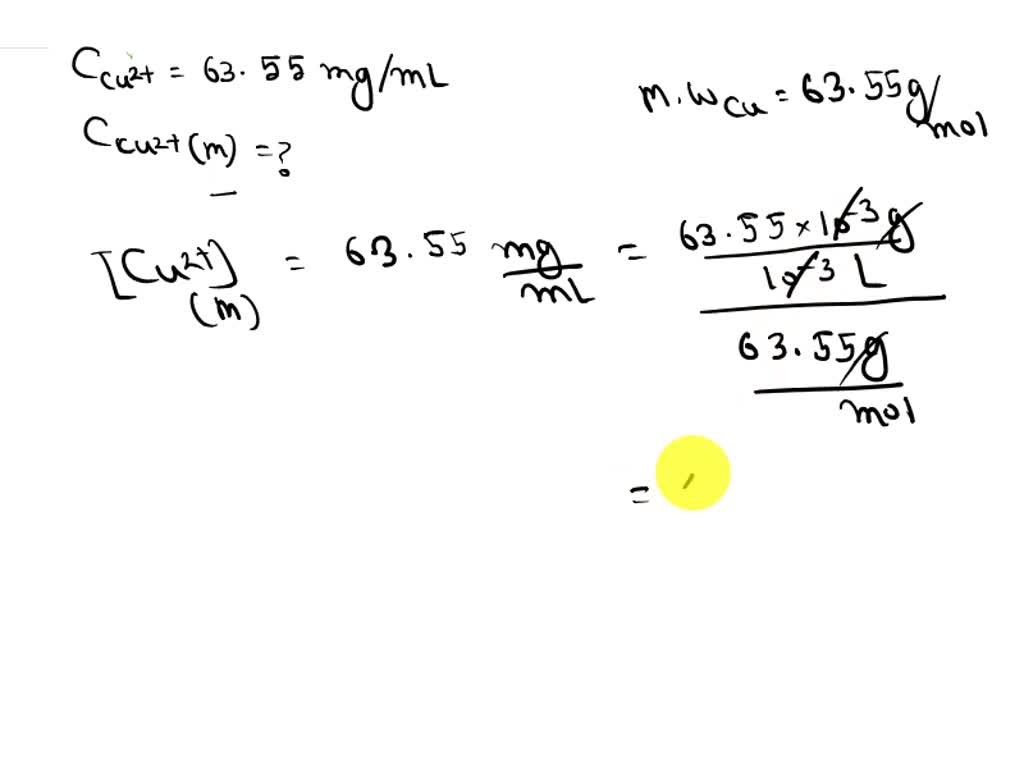 C Cu²⁺ = 63.55 mg/mL
m.w Cu = 63.55 g/mol
C Cu²⁺ (m) = ?
[Cu²⁺] (m) = 63.55 mg/mL = 63.55 × 10⁻³ g
10⁻³ L
63.55 g
mol
=